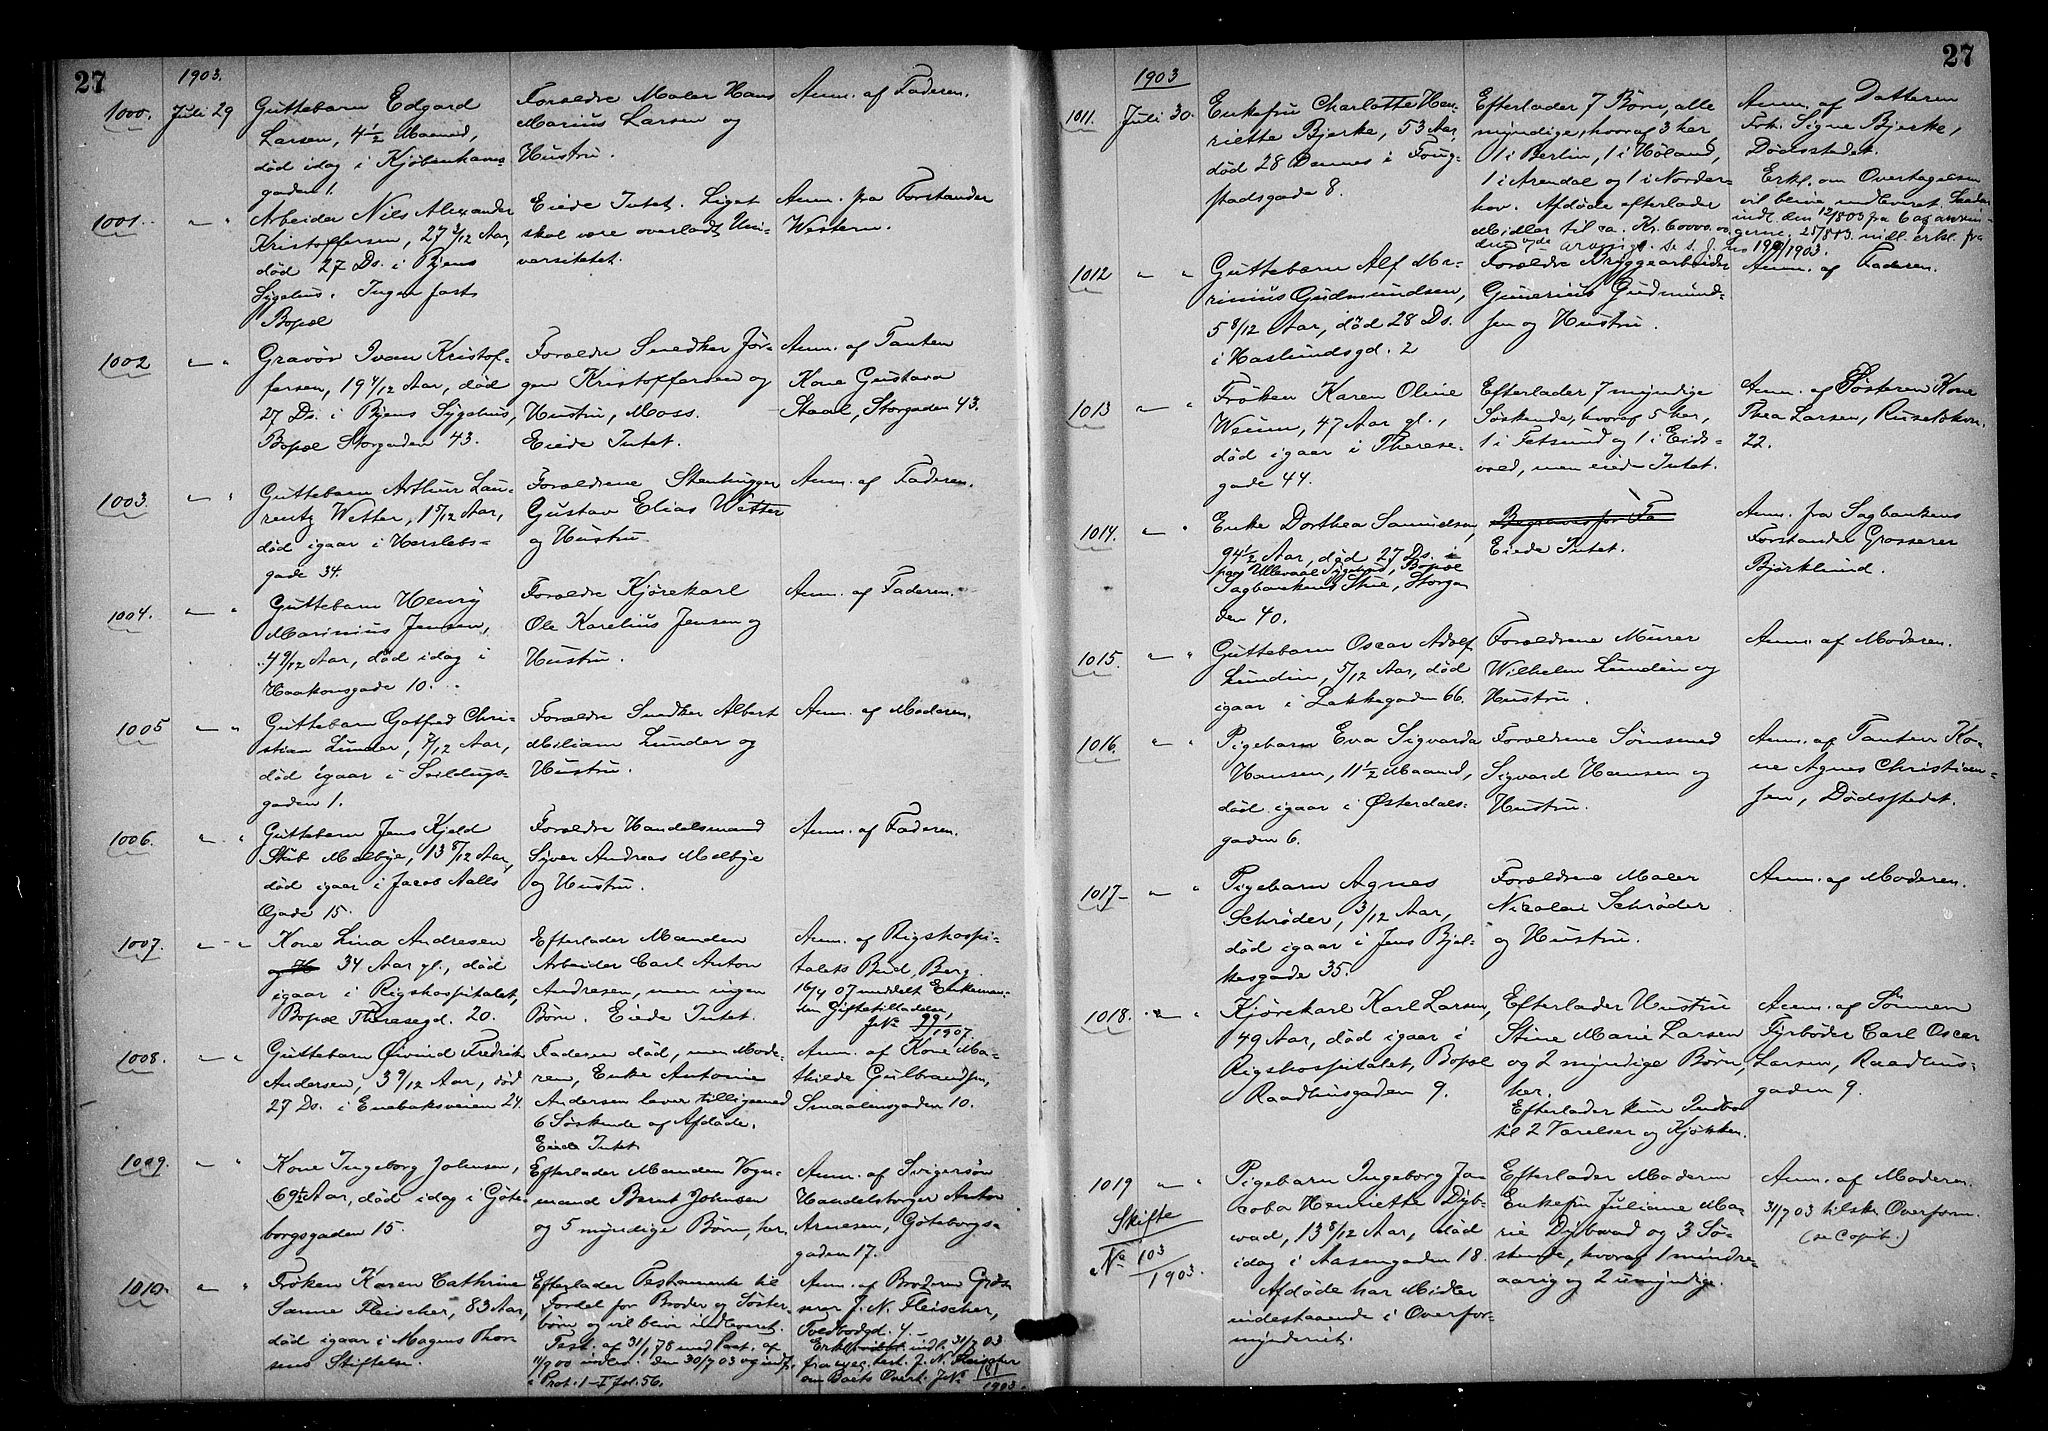 27
1903.
1000.
Juli 29
Guttebarn Edgard
Larsen, 4 1/2 Maaned,
død idag i Kjøbenhavns-
gaden 1.
Forældre Maler Hans
Marius Larsen og
Hustru.
Anm. af Faderen.
1001.
Arbeider Nils Alexander
Kristoffersen, 27 3/12 Aar,
død 27 Ds. i Byens
Sygehus. Ingen fast
Bopæl
Eiede Intet. Liget
skal være overladt Uni-
versitetet.
Anm. fra Forstander
Western.
1002
Gravør Ivan Kristof-
fersen, 19 4/12 Aar, død
27 Ds. i Byens Sygehus,
Bopæl Storgaden 43.
Forældre Snedker Jør-
gen Kristoffersen og
Hustru, Moss.
Eiede Intet.
Anm. af Tanten
Kone Gustava
Staal, Storgaden 43.
1003.
Guttebarn Arthur Lau-
rentz Wetter, 1 5/12 Aar,
død igaar i Herslebs-
gade 34.
Forældrene Stenhugger
Gustav Elias Wetter
og Hustru.
Anm. af Faderen.
1004.
Guttebarn Henry
Marinius Jensen,
4 9/12 Aar, død idag i
Haakonsgade 10.
Forældre Kjørekarl
Ole Karelius Jensen og
Hustru.
Anm. af Faderen.
1005
Guttebarn Gotfred Chri-
stian Lunder, 7/12 Aar,
død igaar i
gaden 1.
Forældre Snedker Albert
Miliam Lunder og
Hustru.
Anm. af Moderen.
1006.
Guttebarn Jens Kjeld
Stub Melbye, 13 8/12 Aar,
død igaar i Jacob Aalls
Gade 15.
Forældre Handelsmand
Syver Andreas Melbye
og Hustru.
Anm. af Faderen.
1007.
Kone Lina Andresen
34 Aar gl., død
igaar i Rigshospitalet,
Bopæl Theresegd. 20.
Efterlader Manden
Arbeider Carl Anton
Andresen, men ingen
Børn. Eiede Intet.
Anm. af Rigshospi-
talets Bud, Berg.
16/4 07 meddelt Enkeman-
den Giftetilladelse,
JNo 99/1907.
1008.
Guttebarn Øivind Fredrik
Andersen, 3 9/12 Aar, død
27 Ds. i Enebakveien 24.
Faderen død, men Mode-
ren, Enke Antonie
Andersen lever tilligemed
6 Søskende af Afdøde.
Eiede Intet.
Anm. af Kone Ma-
thilde Gulbrandsen,
Smaalensgaden 10.
1009.
Kone Ingeborg Johnsen,
69 1/2 Aar, død idag i Gøte-
borgsgaden 15.
Efterlader Manden Vogn-
mand Bernt Johnsen
og 5 myndige Børn, her.
Anm. af Svigersøn
Handelsborger Anton
Arnesen, Gøteborgs-
gaden 17.
1010.
Frøken Karen Cathrine
Sanne Fleischer, 83 Aar,
død igaar i Magnus Thor-
sens Stiftelse.
Efterlader Testamente til
Fordel for Broder og Søster-
børn og vil blive indleveret.
Test. af 31/1 78 med Paat. af
11/9 00 indlev. den 30/7 03 og indf.
i Prot. 1-I fol. 56.
Anm. af Broderen Gros-
serer J. N. Fleischer,
Tvedbodgd. 4.
indl. 31/7 03
fra exec. test. J. N. Fleischer
om Boets Overt. JNo 181/1903.
27
1903
1011.
Juli 30.
Enkefru Charlotte Hen-
riette Bjerke, 53 Aar,
død 28 Dennes i Foug-
stadsgade 8.
Efterlader 7 Børn, alle
myndige, hvoraf 3 her,
1 i Berlin, 1 i Høland,
1 i Arendal og 1 i Norder-
hov. Afdøde efterlader
Midler til ca. Kr. 60000.
Anm. af Datteren
Frk. Signe Bjerke,
Dødsstedet.
Erkl. om Overtagelsen
vil blive indleveret. Saadan
indl. den 12/8 03 fra 6 af arvin-
gerne. 25/8 03. indl. erkl. fra
den 7de arving. se s. J. No 190/1903.
1012
Guttebarn Alf Ma-
rinius Gudmundsen,
5 8/12 Aar, død 28 Ds.
i Haslundsgd. 2
Forældre Bryggearbeider
Gunerius Gudmund-
sen og Hustru.
Anm. af Faderen.
1013
Frøken Karen Oline
Weium, 47 Aar gl.,
død igaar i Therese-
gade 44.
Efterlader 7 myndige
Søskende, hvoraf 5 her,
1 i Fetsund og 1 i Eids-
vold, men eiede Intet.
Anm. af Søsteren Kone
Thea Larsen, Ruseløkvn.
22.
1014.
Enke Dorthea Samuelsen,
94 1/2 Aar, død 27 Ds. i
paa Ullevaal Sygehus, Bopæl
Sagbankens Stue, Storga-
den 40.
Begraves for Fa
Eiede Intet.
Anm. fra Sagbankens
Forstander Grosserer
Bjørklund.
1015.
Guttebarn Oscar Adolf
Lundin, 5/12 Aar, død
igaar i Lakkegaden 66.
Forældrene Murer
Wilhelm Lundin og
Hustru.
Anm. af Moderen.
1016.
Pigebarn Eva Sigvarda
Hansen, 11 1/2 Maaned,
død igaar i Østerdals-
gaden 6.
Forældrene Sømsmed
Sigvard Hansen og
Hustru.
Anm. af Tanten Ko-
ne Agnes Christian-
sen, Dødsstedet.
1017-
Pigebarn Agnes
Schrøder, 3/12 Aar,
død igaar i Jens Bjel-
kesgade 35.
Forældrene Maler
Nicolai Schrøder
og Hustru.
Anm. af Moderen.
1018.
Kjørekarl Karl Larsen,
49 Aar, død igaar i
Rigshospitalet, Bopæl
Raadhusgaden 9.
Efterlader Hustru
Stine Marie Larsen
og 2 myndige Børn,
her.
Efterlader kun Indbo
til 2 Værelser og Kjøkken.
Anm. af Sønnen
Fyrbøder Carl Oscar
Larsen, Raadhus-
gaden 9.
1019
Skifte
No 103/1903.
Pigebarn Ingeborg Ja-
coba Henriette Dyb-
wad, 13 8/12 Aar, død
idag i Aasengaden 18.
Afdøde har Midler
indestaaende i Overfor-
mynderiet.
Efterlader Moderen
Enkefru Juliane Ma-
rie Dybwad og 3 Sø-
skende, hvoraf 1 mindre-
aarig og 2 umyndige.
Anm. af Moderen.
31/7 03 tilskr. Overform.
(se Copib.)